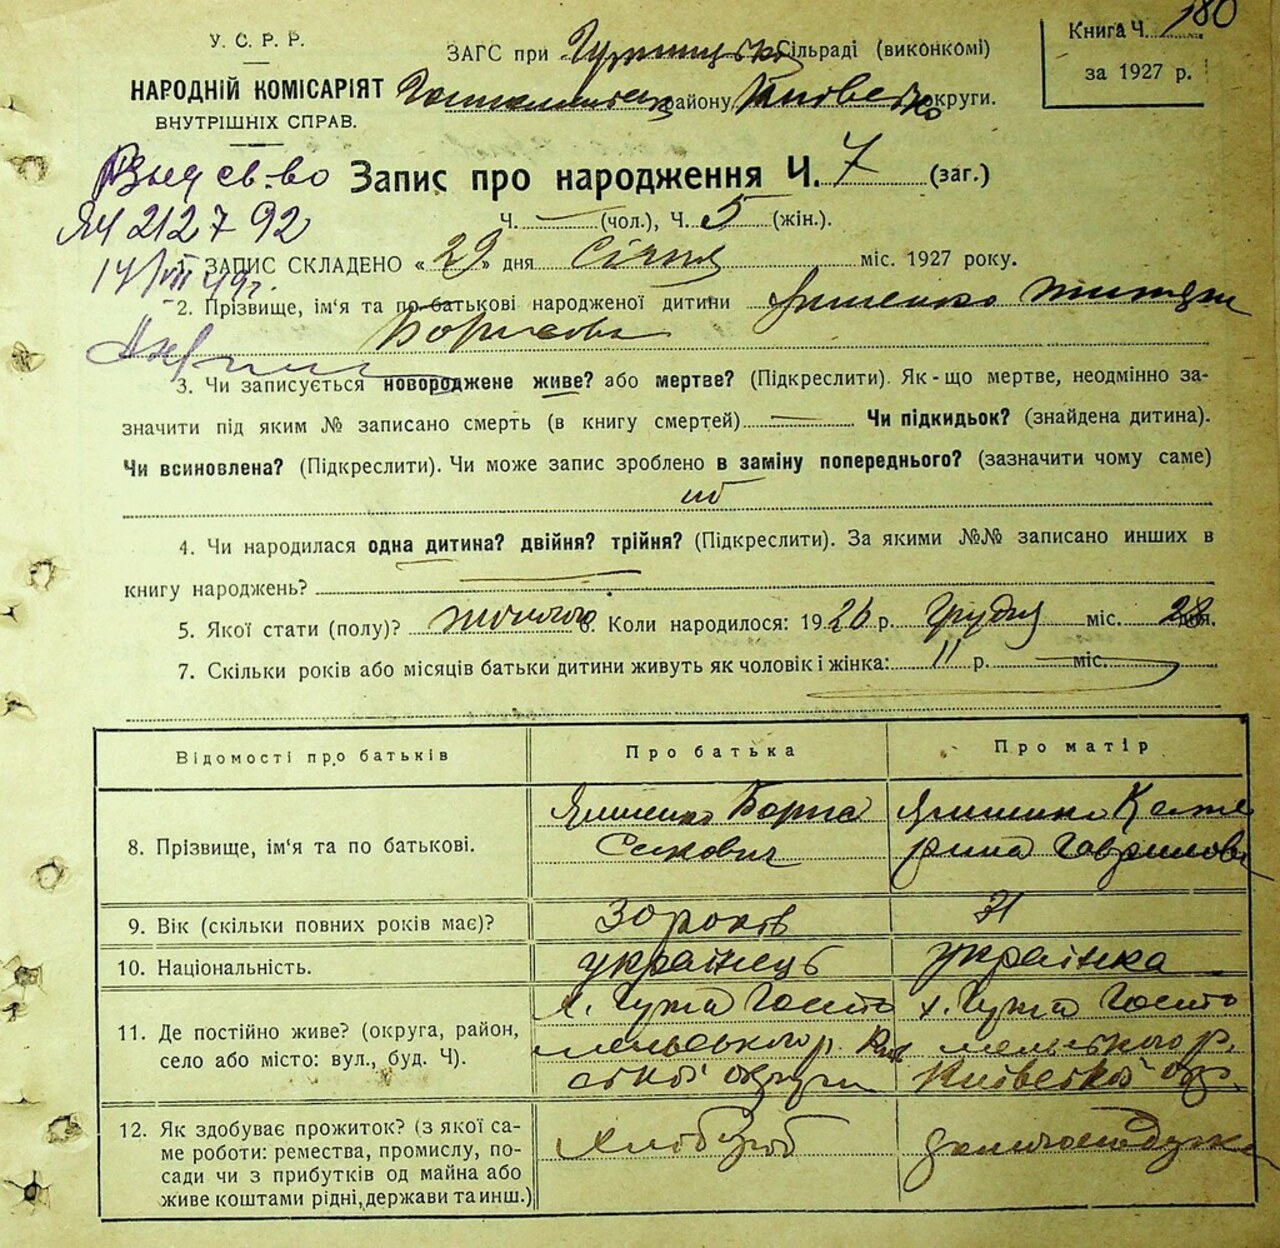 У. С. Р. Р.
НАРОДНІЙ КОМІСАРІЯТ
ВНУТРІШНІХ СПРАВ.
ЗАГС при Сільраді (виконкомі)
району округи.
Книга Ч. 180
за 1927 р.
Выд св-во
ЯЧ 212792
17/VII 49г.
Запис про народження Ч. 7 (заг.)
Ч. — (чол.), Ч. 5 (жін.).
1. ЗАПИС СКЛАДЕНО «29» дня Січня міс. 1927 року.
2. Прізвище, ім'я та по-батькові народженої дитини
Борисовна
3. Чи записується новороджене живе? або мертве? (Підкреслити). Як-що мертве, неодмінно за-
значити під яким № записано смерть (в книгу смертей) Чи підкидьок? (знайдена дитина).
Чи всиновлена? (Підкреслити). Чи може запис зроблено в заміну попереднього? (зазначити чому саме)
4. Чи народилася одна дитина? двійня? трійня? (Підкреслити). За якими №№ записано инших в
книгу народжень?
5. Якої стати (полу)? жіночого 6. Коли народилося: 1926 р. Грудня міс. 28 дня.
7. Скільки років або місяців батьки дитини живуть як чоловік і жінка: 11 р. — міс.
Відомості про батьків
Про батька
Про матір
8. Прізвище, ім'я та по батькові.
Борис
Катерина Гаврилов
9. Вік (скільки повних років має)?
30 років
31
10. Національність.
українець
українка
11. Де постійно живе? (округа, район,
село або місто: вул., буд. Ч).
х. Чужа Госто
мельського р. Киів
ської округи
х. Чужа Госто
мельського р.
Київської окр.
12. Як здобуває прожиток? (з якої са-
ме роботи: ремества, промислу, по-
сади чи з прибутків од майна або
живе коштами рідні, держави та инш.)
Хлібороб
домогосподарка